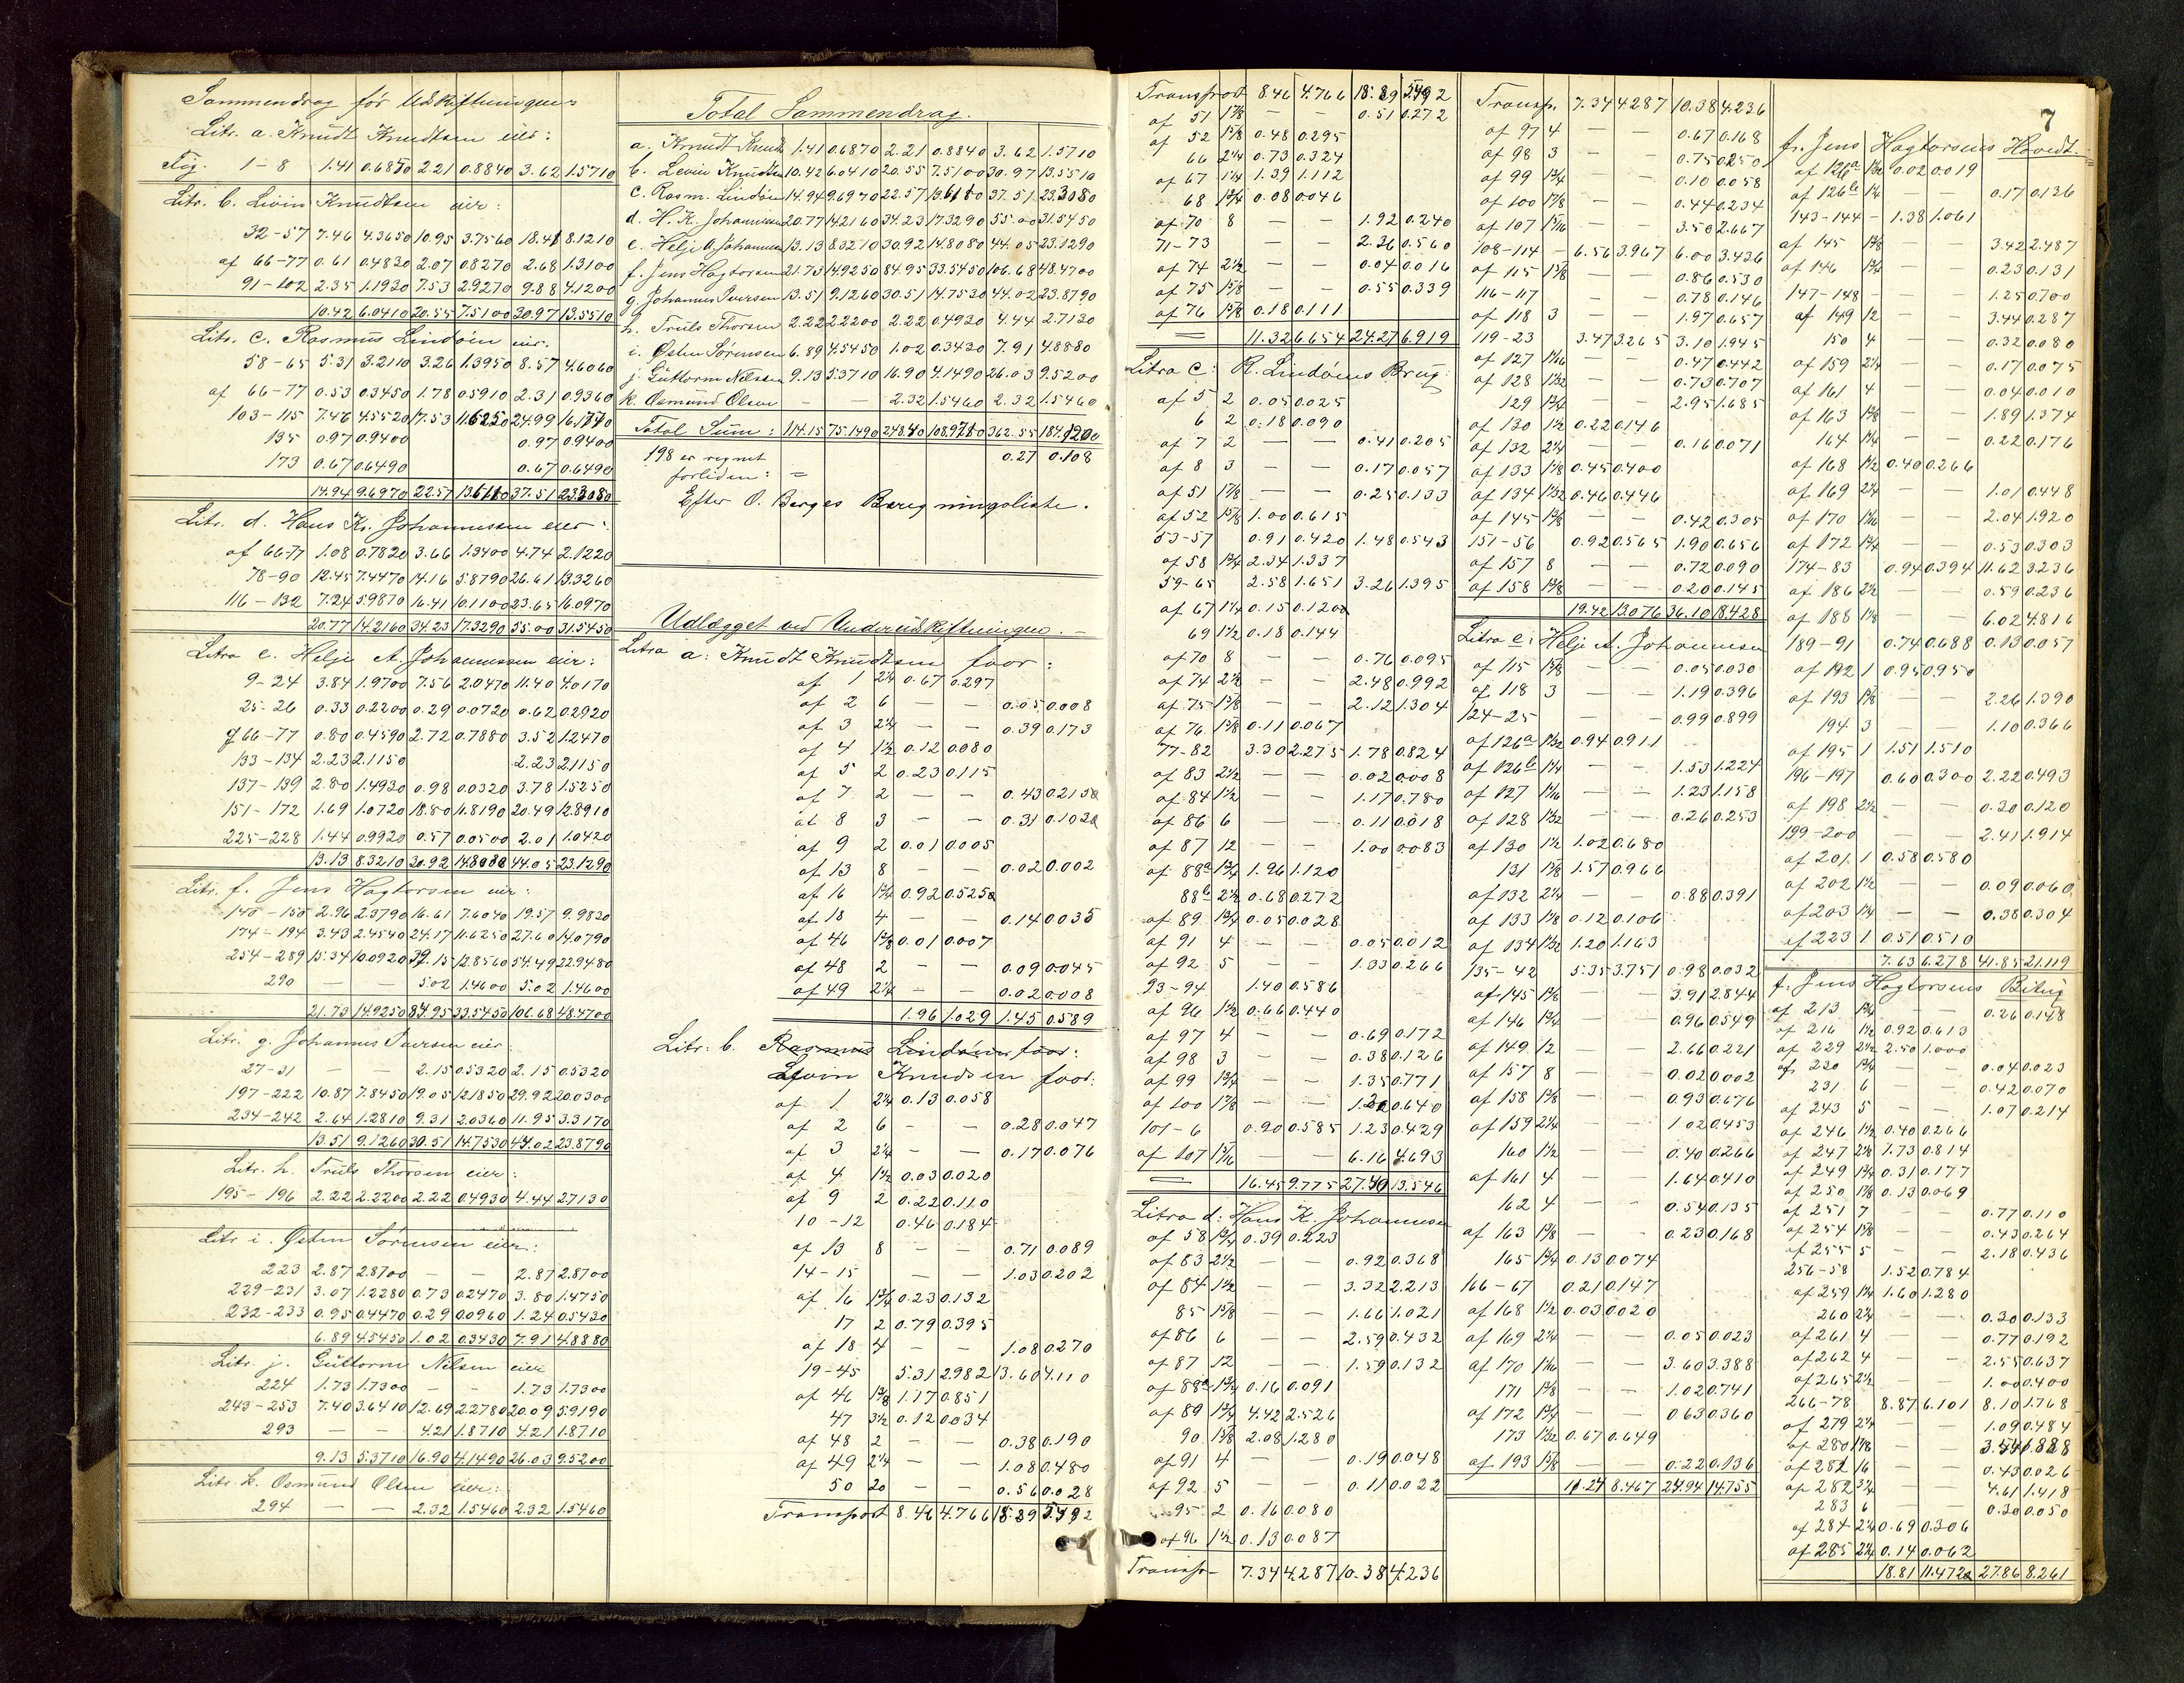 Sammendrag før Udskiftningen:
Litr. a. Knudt Knudtsen eier:
Fig. 1-8 1.41 0.6870 2.21 0.8840 3.62 1.5710
Litr. b. Livin Knudtsen eier:
32-57 7.46 4.3650 10.95 3.7560 18.41 8.1210
af 66-77 0.61 0.4830 2.07 0.8270 2.68 1.3100
91-102 2.35 1.1930 7.53 2.9270 9.88 4.1200
10.42 6.0410 20.55 7.5100 30.97 13.5510
Litr. c. Rasmus Lindøin eier.
58-65 5.31 3.2110 3.26 1.3950 8.57 4.6060
af 66-77 0.53 0.3450 1.78 0.5910 2.31 0.9360
103-115 7.46 4.5520 17.53 11.6250 24.99 16.1770
135 0.97 0.9400 0.97 0.9400
173 0.67 0.6490 0.67 0.6490
14.94 9.6970 22.57 13.6110 37.51 23.3080
Litr. d. Hans Kr. Johannessen eier:
af 66-77 1.08 0.7820 3.66 1.3400 4.74 2.1220
78-90 12.45 7.4470 14.16 5.8790 26.61 13.3260
116-132 7.24 5.9870 16.41 10.1100 23.65 16.0970
20.77 14.2160 34.23 17.3290 55.00 31.5450
Litra e. Helje A. Johannessen eier:
9-24 3.84 1.9700 7.56 2.0470 11.40 4.0170
25-26 0.33 0.2200 0.29 0.0720 0.62 0.2920
af 66-77 0.80 0.4590 2.72 0.7880 3.52 1.2470
133-134 2.23 2.1150 2.23 2.1150
137-139 2.80 1.4930 0.98 0.0320 3.78 1.5250
151-172 1.69 1.0720 18.80 11.8190 20.49 12.8910
225-228 1.44 0.9920 0.57 0.0500 2.01 1.0420
13.13 8.3210 30.92 14.8080 44.05 23.1290
Litr. f. Jens Hagtorsen eier:
140-150 2.96 2.3790 16.61 7.6040 19.57 9.9830
174-194 3.43 2.4540 24.17 11.6250 27.60 14.0790
254-289 15.34 10.0920 39.15 12.8560 54.49 22.9480
290 — — 5.02 1.4600 5.02 1.4600
21.73 14.9250 84.95 33.5450 106.68 48.4700
Litr. g. Johannes Iversen eier:
27-31 — — 2.15 0.5320 2.15 0.5320
197-222 10.87 7.8450 19.05 12.1850 29.92 20.0300
234-242 2.64 1.2810 9.31 2.0360 11.95 3.3170
13.51 9.1260 30.51 14.7530 44.02 23.8790
Litr. h. Truls Thorsen eier:
195-196 2.22 2.2200 2.22 0.4930 4.44 2.7130
Litr i. Østen Sørensen eier:
223 2.87 2.8700 — — 2.87 2.8700
229-231 3.07 1.2280 0.73 0.2470 3.80 1.4750
232-233 0.95 0.4470 0.29 0.0960 1.24 0.5430
6.89 4.5450 1.02 0.3430 7.91 4.8880
Litr. j. Guttorm Nilsen eier
224 1.73 1.7300 — — 1.73 1.7300
243-253 7.40 3.6410 12.69 2.2780 20.09 5.9190
293 — — 4.21 1.8710 4.21 1.8710
9.13 5.3710 16.90 4.1490 26.03 9.5200
Litr. k. Osmund Olsen eier:
294 — — 2.32 1.5460 2.32 1.5460
Total Sammendrag.
a. Knudt Knudt 1.41 0.6870 2.21 0.8840 3.62 1.5710
b. Levin Knudtsen 10.42 6.0410 20.55 7.5100 30.97 13.5510
c. Rasm. Lindøin 14.94 9.6970 22.57 13.6110 37.51 23.3080
d. H. K. Johannessen 20.77 14.2160 34.23 17.3290 55.00 31.5450
e. Helje A. Johannessen 13.13 8.3210 30.92 14.8080 44.05 23.1290
f. Jens Hagtorsen 21.73 14.9250 84.95 33.5450 106.68 48.4700
g. Johannes Iversen 13.51 9.1260 30.51 14.7530 44.02 23.8790
h. Truls Thorsen 2.22 2.2200 2.22 0.4930 4.44 2.7130
i. Østen Sørensen 6.89 4.5450 1.02 0.3430 7.91 4.8880
j. Guttorm Nilssen 9.13 5.3710 16.90 4.1490 26.03 9.5200
k. Osmund Olsen — — 2.32 1.5460 2.32 1.5460
Total Sum: 114.15 75.1490 248.40 362.55
198 er regnet 0.27 0.108
forliden: =
Efter O. Berges Beregningsliste.
Udlægget ved Underudskiftningen.
Litra a: Knudt Knudtsen faar:
af 1 2¼ 0.67 0.297
af 2 6 — — 0.05 0.008
af 3 2¼ — — 0.39 0.173
af 4 1½ 0.12 0.080
af 5 2 0.23 0.115
af 7 2 — — 0.43 0.215
af 8 3 — — 0.31 0.102
af 9 2 0.01 0.005
af 13 8 — — 0.02 0.002
af 16 1¾ 0.92 0.525
af 18 4 — — 0.14 0.035
af 46 1⅜ 0.01 0.007
af 48 2 — — 0.09 0.045
af 49 2¼ — — 0.02 0.008
1.96 1.029 1.45 0.589
Litr. b. Rasmus Lindøins faar:
Livin Knudsen faar:
af 1 2¼ 0.13 0.058
af 2 6 — — 0.28 0.047
af 3 2¼ — — 0.17 0.076
af 4 1½ 0.03 0.020
af 9 2 0.22 0.110
10-12 0.46 0.184
af 13 8 — — 0.71 0.089
14-15 — — 1.03 0.202
af 16 1¾ 0.23 0.132
17 2 0.79 0.395
af 18 4 — — 1.08 0.270
19-45 5.31 2.982 13.60 4.110
af 46 1⅜ 1.17 0.851
47 3½ 0.12 0.034
af 48 2 — — 0.38 0.190
af 49 2¼ — — 1.08 0.480
50 20 — — 0.56 0.028
Transport 8.46 4.766 18.89
7
Transport 8.46 4.766 18.89
af 51 1⅞ — — 0.51 0.272
af 52 1⅝ 0.48 0.295
66 2¼ 0.73 0.324
af 67 1¼ 1.39 1.112
68 1¾ 0.08 0.046
af 70 8 — — 1.92 0.240
71-73 — — 2.36 0.560
af 74 2½ — — 0.04 0.016
af 75 1⅝ — — 0.55 0.339
af 76 1⅝ 0.18 0.111
11.32 6.654 24.27 6.919
Litra c: R. Lindøins Brug:
af 5 2 0.05 0.025
6 2 0.18 0.090
af 7 2 — — 0.41 0.205
af 8 3 — — 0.17 0.057
af 51 1⅞ — — 0.25 0.133
af 52 1⅝ 1.00 0.615
53-57 0.91 0.420 1.48 0.543
af 58 1¾ 2.34 1.337
59-65 2.58 1.651 3.26 1.395
af 67 1¼ 0.15 0.120
69 1½ 0.18 0.144
af 70 8 — — 0.76 0.095
af 74 2½ — — 2.48 0.992
af 75 1⅝ — — 2.12 1.304
af 76 1⅝ 0.11 0.067
77-82 3.30 2.275 1.78 0.824
af 83 2½ — — 0.02 0.008
af 84 1½ — — 1.17 0.780
af 86 6 — — 0.11 0.018
af 87 12 — — 1.00 0.083
af 88a 1¾ 1.96 1.120
88b 2½ 0.68 0.272
af 89 1¾ 0.05 0.028
af 91 4 — — 0.05 0.012
af 92 5 — — 1.33 0.266
93-94 1.40 0.586
af 96 1½ 0.66 0.440
af 97 4 — — 0.69 0.172
af 98 3 — — 0.38 0.126
af 99 1¾ — — 1.35 0.771
af 100 1⅞ — — 1.20 0.640
101-6 0.90 0.585 1.23 0.429
af 107 1 5/16 — — 6.16 4.693
16.45 9.775 27.40 13.546
Litra d: Hans K. Johannessen
af 58 1¾ 0.39 0.223
af 83 2½ — — 0.92 0.368
af 84 1½ — — 3.32 2.213
85 1⅝ — — 1.66 1.021
af 86 6 — — 2.59 0.432
af 87 12 — — 1.59 0.132
af 88a 1¾ 0.16 0.091
af 89 1¾ 4.42 2.526
90 1⅝ 2.08 1.280
af 91 4 — — 0.19 0.048
af 92 5 — — 0.11 0.022
95 2 0.16 0.080
af 96 1½ 0.13 0.087
Transp. 7.34 4.287 10.38 4.236
Transp. 7.34 4.287 10.38 4.236
af 97 4 — — 0.67 0.168
af 98 3 — — 0.75 0.250
af 99 1¾ — — 0.10 0.058
af 100 1⅞ — — 0.44 0.234
af 107 1 5/16 — — 3.50 2.667
108-114 — 6.56 3.967 6.00 3.436
af 115 1⅝ — — 0.86 0.530
116-117 — — 0.78 0.146
af 118 3 — — 1.97 0.657
119-23 3.47 3.265 3.10 1.945
af 127 1 1/16 — — 0.47 0.442
af 128 1 1/32 — — 0.73 0.707
129 1¾ — — 2.95 1.685
af 130 1½ 0.22 0.146
af 132 2¼ — — 0.16 0.071
af 133 1⅛ 0.45 0.400
af 134 1 1/32 0.46 0.446
af 145 1⅜ — — 0.42 0.305
151-56 0.92 0.565 1.90 0.656
af 157 8 — — 0.72 0.090
af 158 1⅜ — — 0.20 0.145
19.42 13.076 36.10 18.428
Litra e: Helje A. Johannessen
af 115 1⅝ — — 0.05 0.030
af 118 3 — — 1.19 0.396
124-25 — — 0.99 0.899
af 126a 1 1/32 0.94 0.911
af 126b 1¼ — — 1.53 1.224
af 127 1 1/16 — — 1.23 1.158
af 128 1 1/32 — — 0.26 0.253
af 130 1½ 1.02 0.680
131 1⅝ 1.57 0.966
af 132 2¼ — — 0.88 0.391
af 133 1⅛ 0.12 0.106
af 134 1 1/32 1.20 1.163
135-42 5.35 3.751 0.98 0.032
af 145 1⅜ — — 3.91 2.844
af 146 1¾ — — 0.96 0.549
af 149 12 — — 2.66 0.221
af 157 8 — — 0.02 0.002
af 158 1⅜ — — 0.93 0.676
af 159 2¼ — — 1.02 0.453
160 1½ — — 0.40 0.266
af 161 4 — — 1.64 0.410
162 4 — — 0.54 0.135
af 163 1⅜ — — 0.23 0.168
165 1¾ 0.13 0.074
166-67 0.21 0.147
af 168 1½ 0.03 0.020
af 169 2¼ — — 0.05 0.023
af 170 1 1/16 — — 3.60 3.388
171 1⅜ — — 1.02 0.741
af 172 1¾ — — 0.63 0.360
173 1 1/32 0.67 0.649
af 193 1⅝ — — 0.22 0.136
11.24 8.467 24.94 14.755
fr. Jens Hagtorsens Hovedt.
af 126a 1 1/32 0.02 0.019
af 126b 1¼ 0.17 0.136
143-144 — 1.38 1.061
af 145 1⅜ — — 3.42 2.487
af 146 1¾ — — 0.23 0.131
147-148 — — 1.25 0.700
af 149 12 — — 3.44 0.287
150 4 — — 0.32 0.080
af 159 2¼ — — 0.17 0.075
af 161 4 — — 0.04 0.010
af 163 1⅜ — — 1.89 1.374
164 1¼ — — 0.22 0.176
af 168 1½ 0.40 0.266
af 169 2¼ — — 1.01 0.448
af 170 1 1/16 — — 2.04 1.920
af 172 1¾ — — 0.53 0.303
174-83 0.94 0.394 11.62 3.236
af 186 2½ — — 0.59 0.236
af 188 1¼ — — 6.02 4.816
189-91 0.74 0.688 0.13 0.057
af 192 1 0.95 0.950
af 193 1⅝ — — 2.26 1.390
194 3 — — 1.10 0.366
af 195 1 1.51 1.510
196-197 0.60 0.300 2.22 0.493
af 198 2½ — — 0.30 0.120
199-200 — — 2.41 1.914
af 201 1 0.58 0.580
af 202 1½ — — 0.09 0.060
af 203 1¼ — — 0.38 0.304
af 223 1 0.51 0.510
7.63 6.278 41.85 21.119
f. Jens Hagtorsens Bibrug
af 213 1¾ — — 0.26 0.148
af 216 1½ 0.92 0.613
af 229 2½ 2.50 1.000
af 230 1¾ — — 0.04 0.023
231 6 — — 0.42 0.070
af 243 5 — — 1.07 0.214
af 246 1½ 0.40 0.266
af 247 2⅛ 1.73 0.814
af 249 1¾ 0.31 0.177
af 250 1⅞ 0.13 0.069
af 251 7 — — 0.77 0.110
af 254 1⅝ — — 0.43 0.264
af 255 5 — — 2.18 0.436
256-58 1.52 0.784
af 259 1¼ 1.60 1.280
260 2¼ — — 0.30 0.133
af 261 4 — — 0.77 0.192
af 262 4 — — 2.55 0.637
af 265 2½ — — 1.00 0.400
266-78 8.87 6.101 8.10 1.768
af 279 2¼ — — 1.09 0.484
af 280 1⅞ — —
af 281 16 — — 0.43 0.026
af 282 3¼ — — 4.61 1.418
283 6 — — 0.30 0.050
af 284 2¼ 0.69 0.306
af 285 2¼ 0.14 0.062
18.81 11.472 27.86 8.261